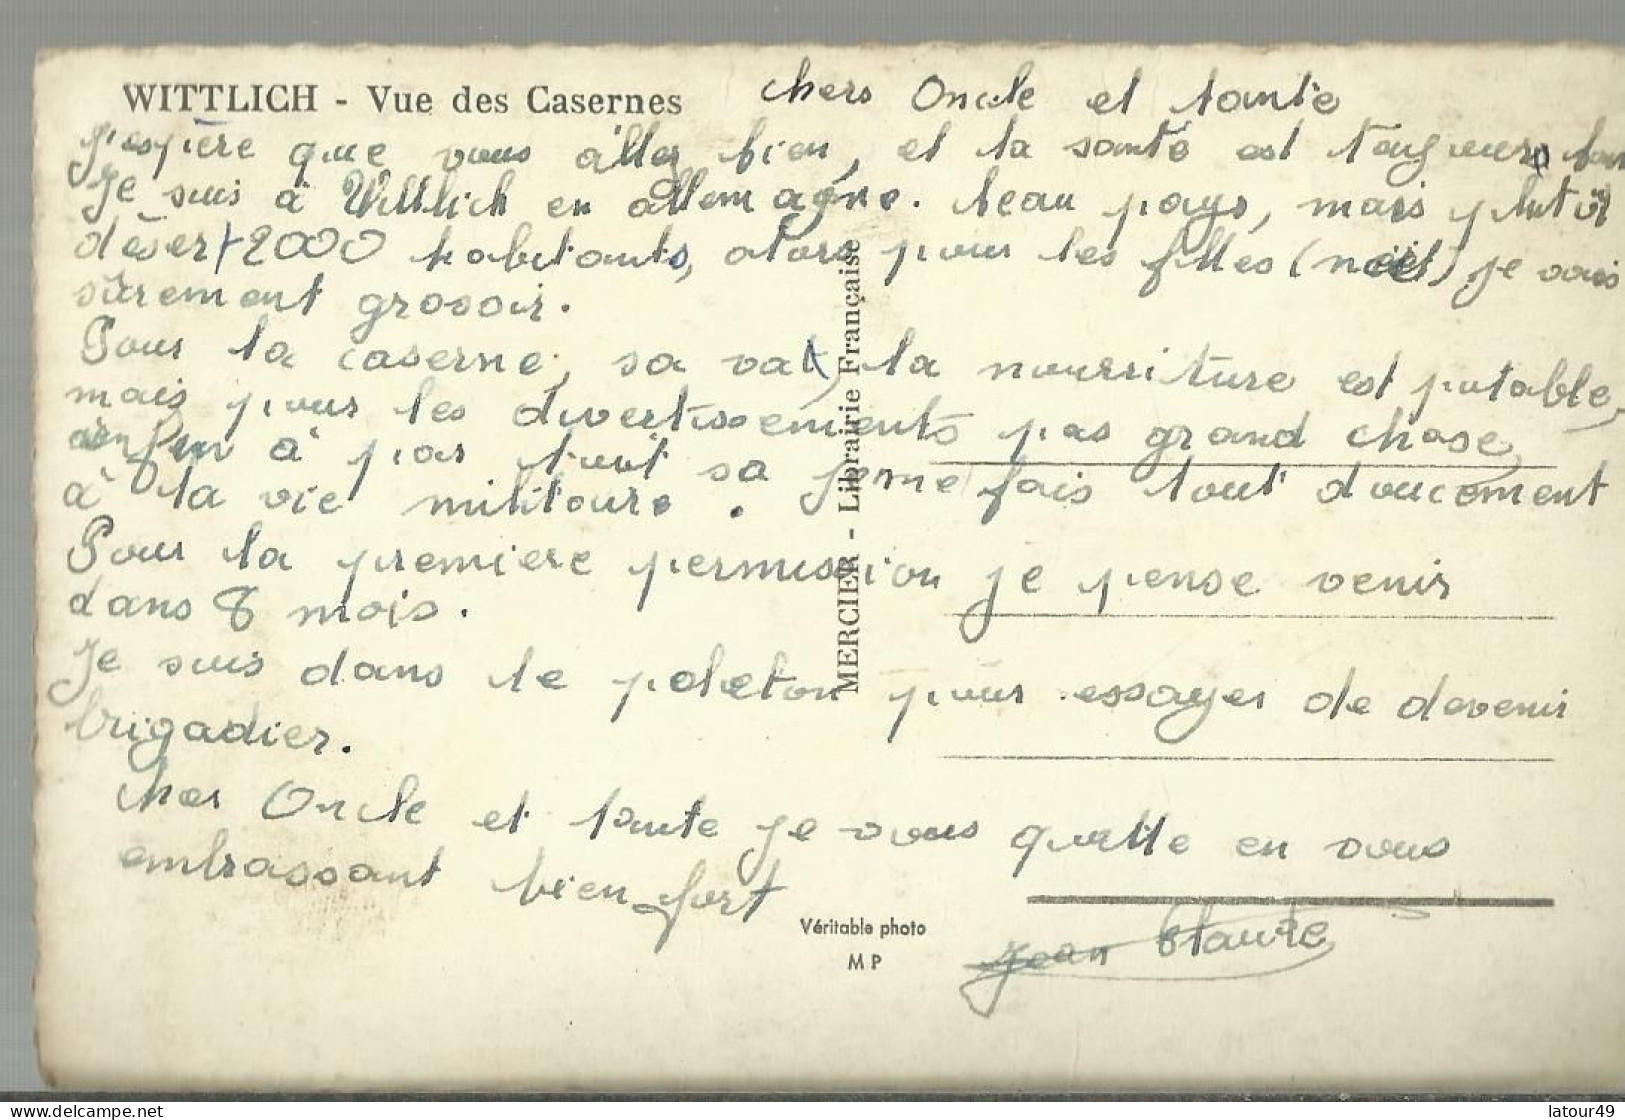 WITTLICH - Vue des Casernes
chers Oncle et tante
j'espière que vous aller bien, et la santé est toujours bon
Je suis à Wittlich en allemagne. beau pays, mais plutôt
désert 2000 habitants, alors pour les filles (noël) je vais
sûrement grossir.
Pour la caserne, sa vat, la nourriture est potable,
mais pour les divertissements pas grand chose,
à par tout sa je me fais tout doucement
à la vie militaire.
Pour la premiere permission je pense venir
dans 8 mois.
Je suis dans le peleton pour essayer de devenir
brigadier.
cher Oncle et tante je vous quitte en vous
embrassant bien fort
Jean Claude
MERCIER - Librairie Française
Véritable photo
M P
latour49
www.delcampe.net